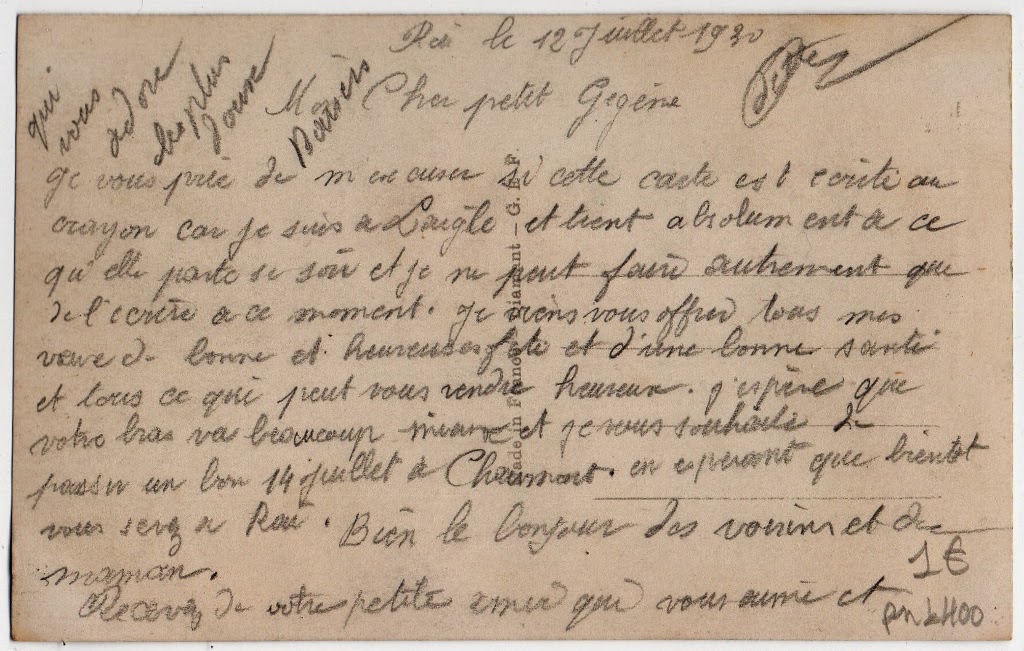 Rai le 12 Juillet 1930
Mon Cher petit Gegène
Je vous prie de m excuser si cette carte est ecrite au
crayon car je suis a Laigle et tient absolument a ce
qu'elle parte se soir et je ne peut faire autrement que
de l'ecrire a ce moment. Je viens vous offrir tous mes
vœux de bonne et heureuses fete et d'une bonne santé
et tous ce qui peut vous rendre heureux. J'espère que
votre bras va beaucoup mieux et je vous souhaite de
passer un bon 14 juillet à Chaumont. en esperant que bientot
vous serez a Rai. Bien le bonjour des voisins et de
maman.
Recevez de votre petite amie qui vous aime et
qui
vous
adore
les plus
doux
Baisers
Made in France Diamant - G. E. F.
1€
pn 4400